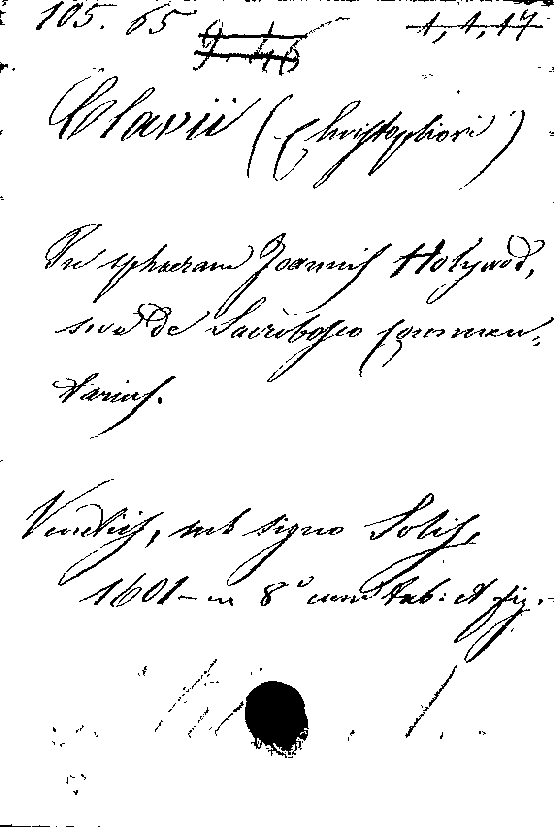 105. 65 9.46 1,1,17
Clavii (Christophori)
In sphaeram Joannis Holywod,
sive de Sacrobosco Commen-
tarius.
Venetiis, sub signo Solis,
1601 - in 8° cum tab: et fig.